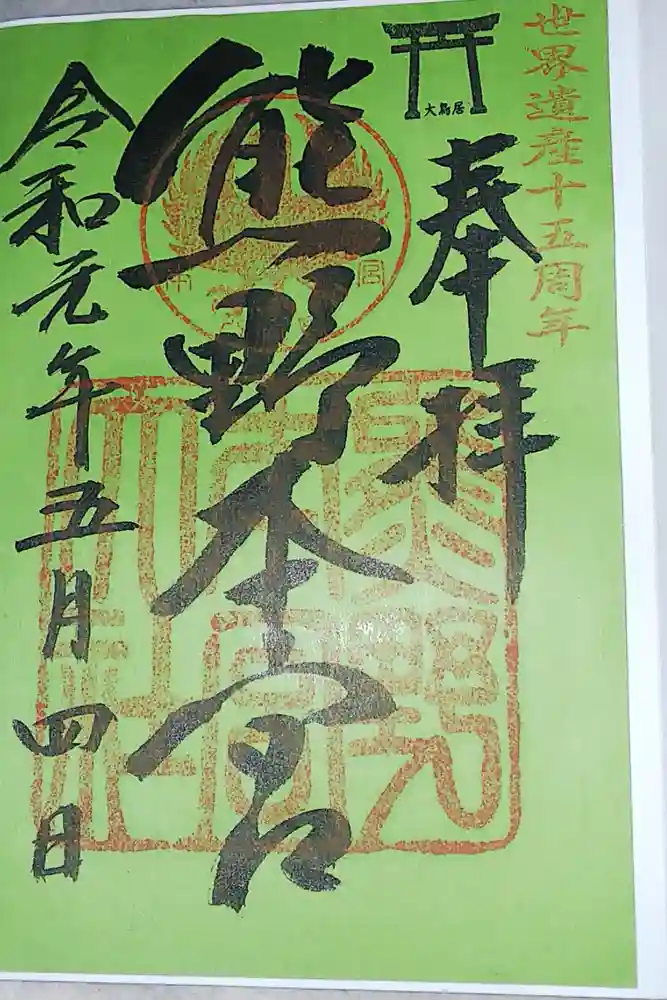 世界遺産十五周年
大鳥居
奉拝
熊野本宮
令和元年五月四日